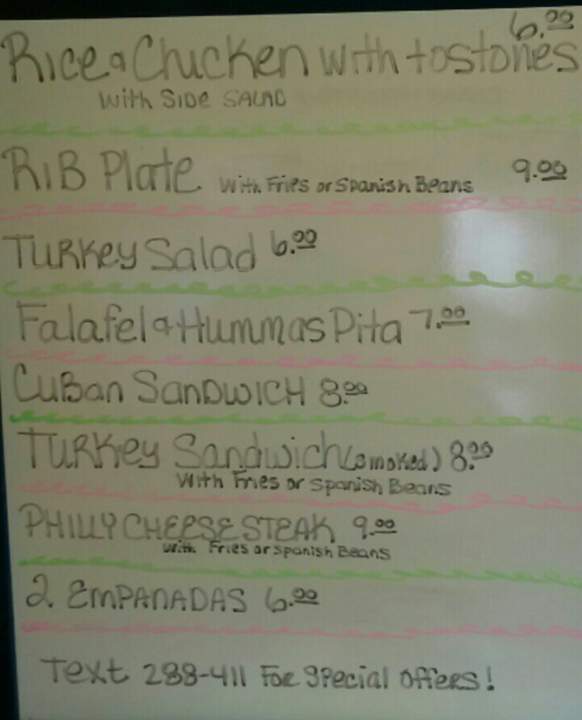 6.00
Rice & Chicken with tostones
With Side SALAD
RIB Plate With Fries or Spanish Beans 9.00
TURKey Salad 6.00
Falafel & Hummas Pita 7.00
CuBan SanDWICH 8.00
TURKey Sandwich (smoked) 8.00
With Fries or Spanish Beans
PHILLY CHEESE STEAK 9.00
With Fries or Spanish Beans
2 EMPANADAS 6.00
Text 288-411 For Special offers!